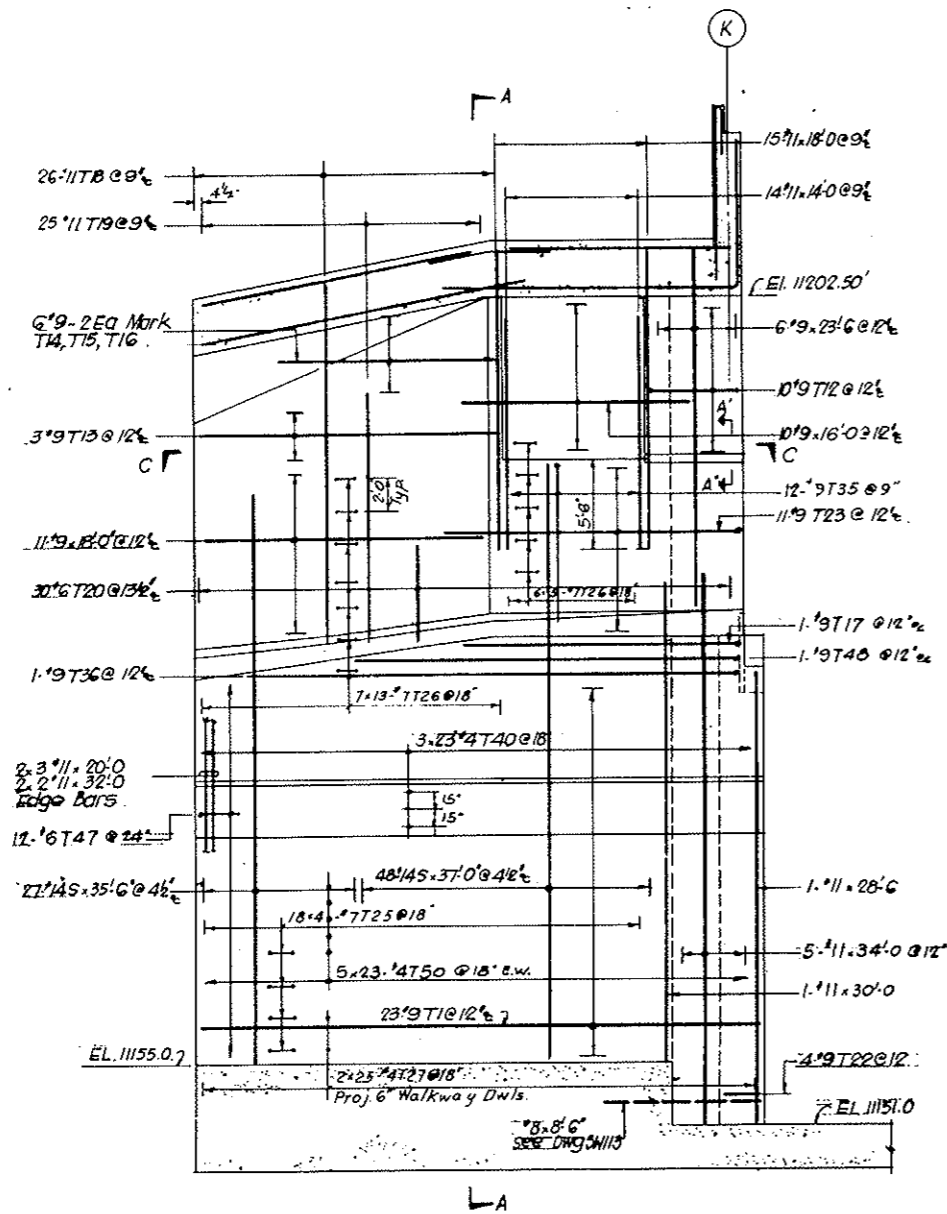 K
A
15-#11x18'-0@9"℄
26-#11T18@9"℄
4½"
14-#11x14'-0@9"℄
25-#11T19@9"℄
EL. 11202.50'
6-#9-2 Ea Mark
T14, T15, T16
6-#9x23'-6@12"℄
10-#9T12@12"℄
A'
3-#9T13@12"℄
10-#9x16'-0@12"℄
C
C
2'-0
Typ.
A'
12-#9T35@9"
5'-8"
11-#9T23@12"℄
11-#9x18'-0"@12"℄
30-#6T20@13½"℄
6x3-#7T26@18"
1-#9T17 @12"
1-#9T48 @12"
1-#9T36@12"℄
7x13-#7T26@18"
3x23-#4T40@18
2x3#11x20'-0
2x2#11x32'-0
Edge Bars
15"
15"
12-#6T47 @24"
27-#14Sx35'-6"@4½"℄
48-#14Sx37'-0"@4½"℄
1-#11x28'-6
18x4-#7T25@18"
5-#11x34'-0@12"
5x23-#4T50 @18" E.W.
1-#11x30'-0
23-#9T1@12"℄
EL. 11155.0
4-#9T22@12
2x23-#4T27@18"
Proj. 6" Walkway Dwls.
EL. 11151.0
#8x8'-6"
see Dwg
A